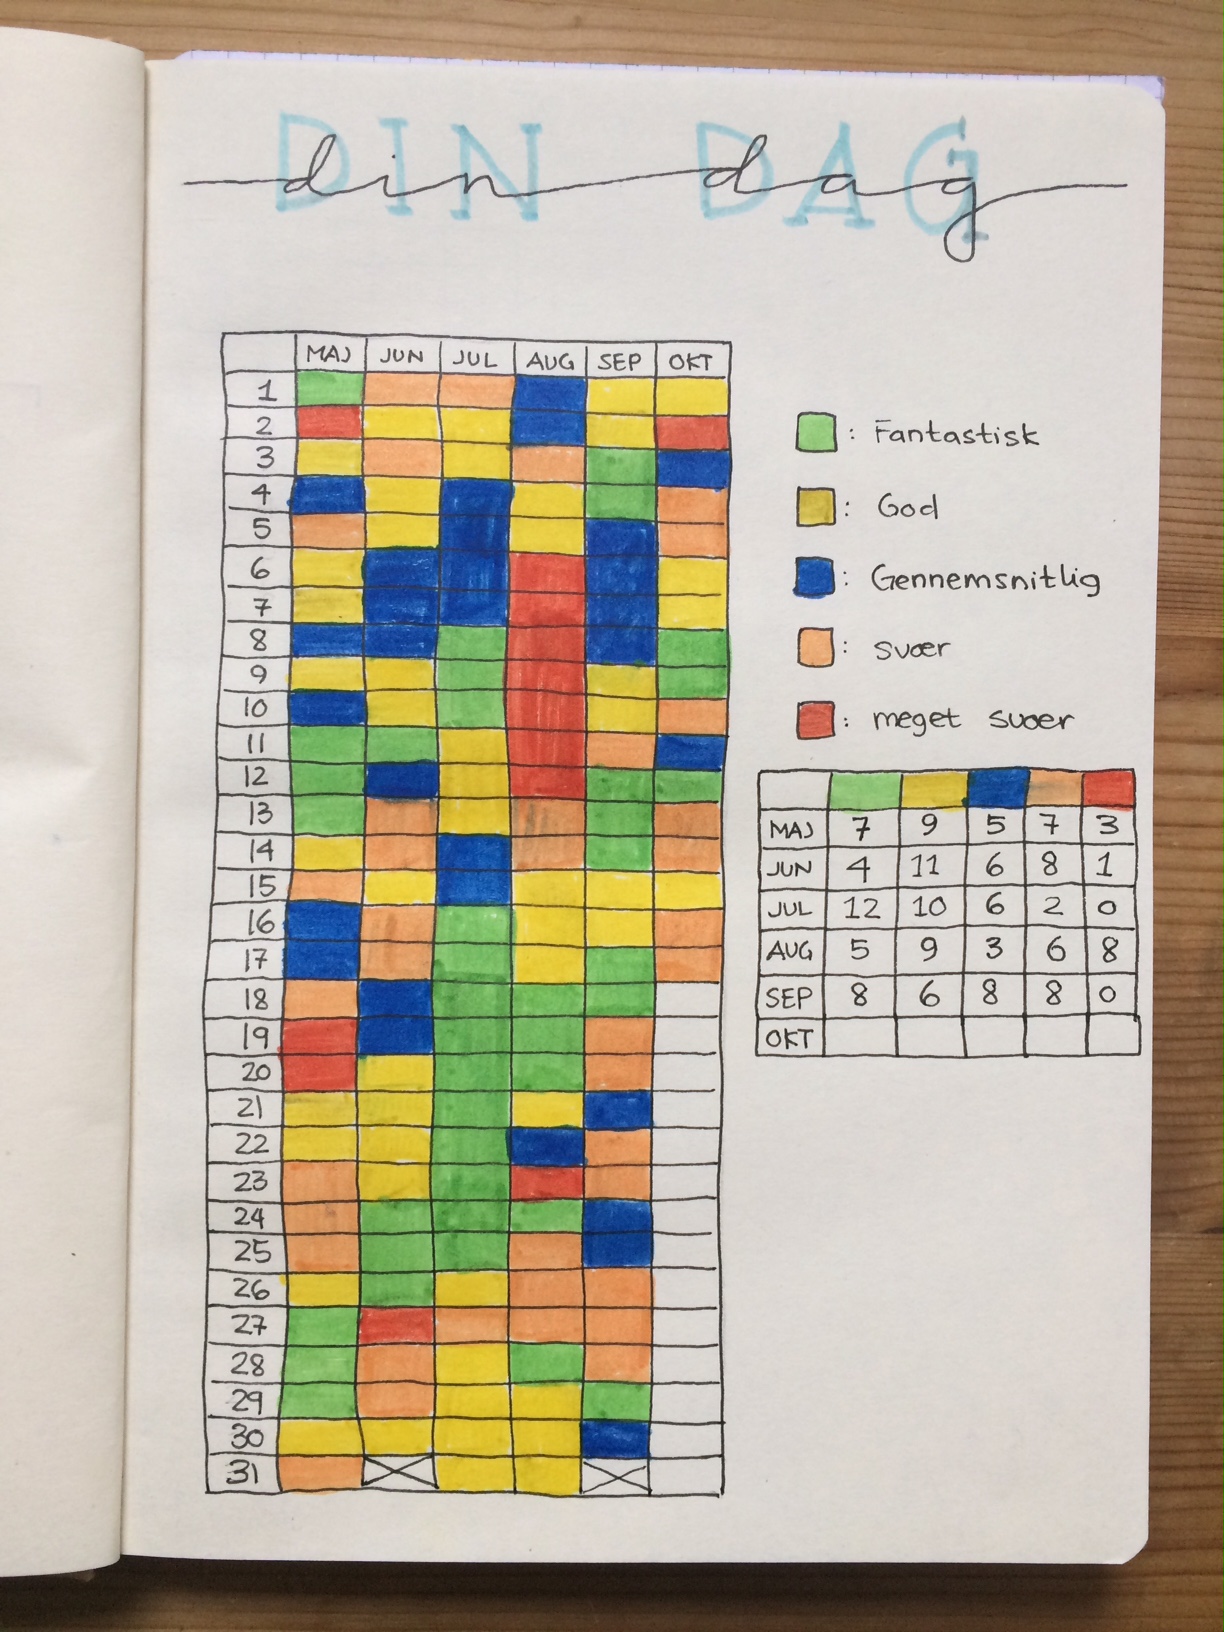 DIN DAG
din dag
MAJ JUN JUL AUG SEP OKT
1
2
3
4
5
6
7
8
9
10
11
12
13
14
15
16
17
18
19
20
21
22
23
24
25
26
27
28
29
30
31
: Fantastisk
: God
: Gennemsnitlig
: svær
: meget svær
MAJ 7 9 5 7 3
JUN 4 11 6 8 1
JUL 12 10 6 2 0
AUG 5 9 3 6 8
SEP 8 6 8 8 0
OKT